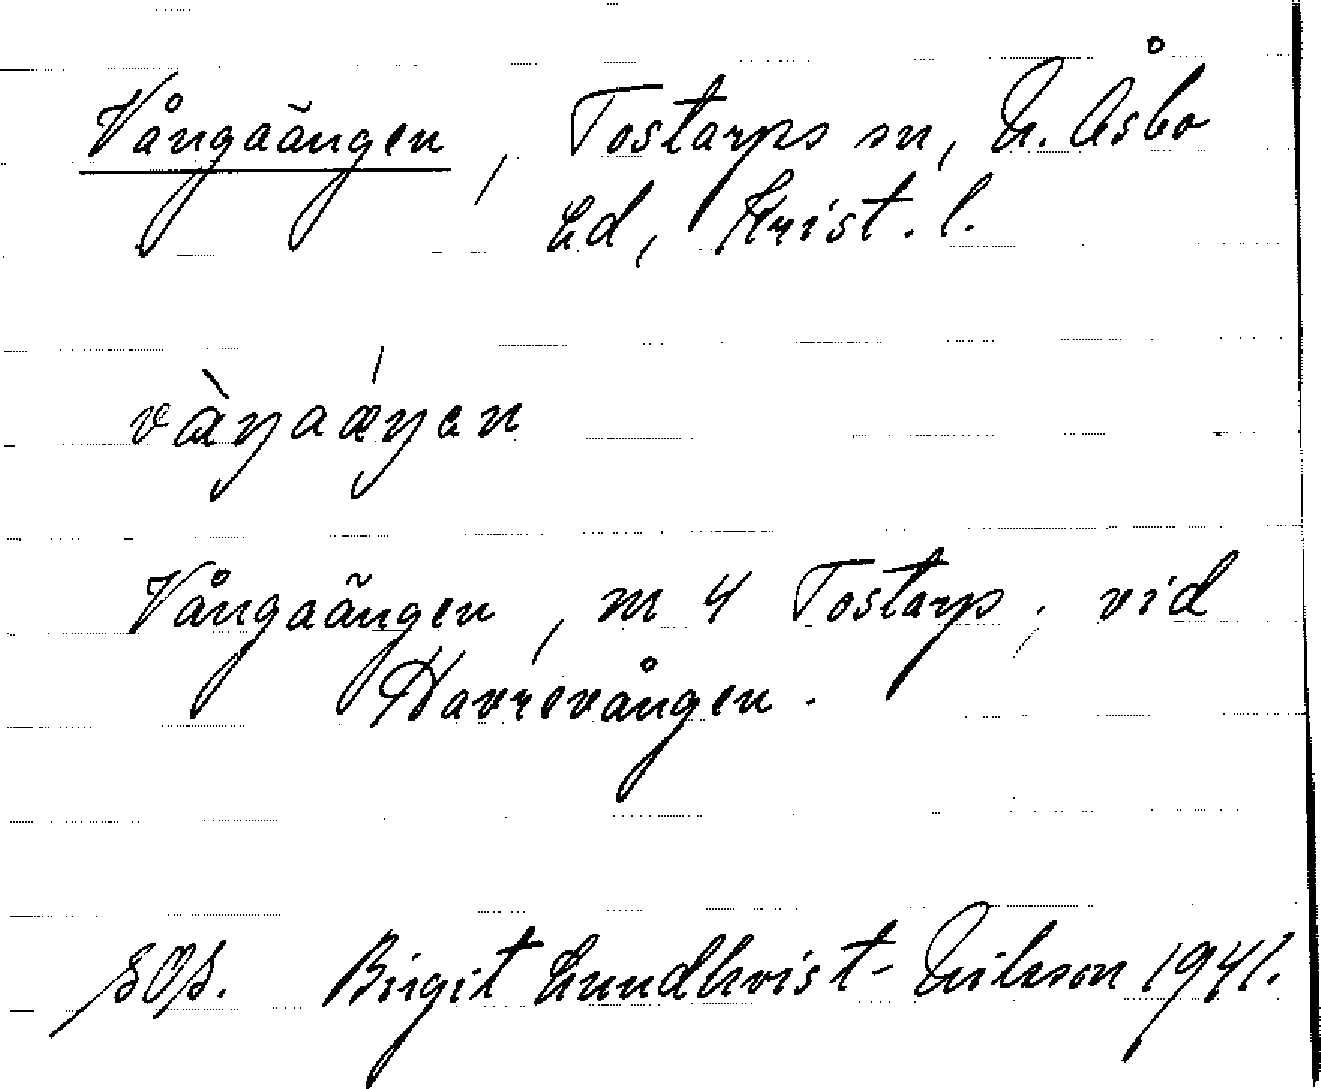 Vångaängen, Tostarps sn, N. Åsbo
hd, Krist. l.
vàŋaǽŋen
Vångaängen, m 4 Tostarp; vid
Havrevången.
SOS. Birgit Lundkvist-Nilsson 1941.